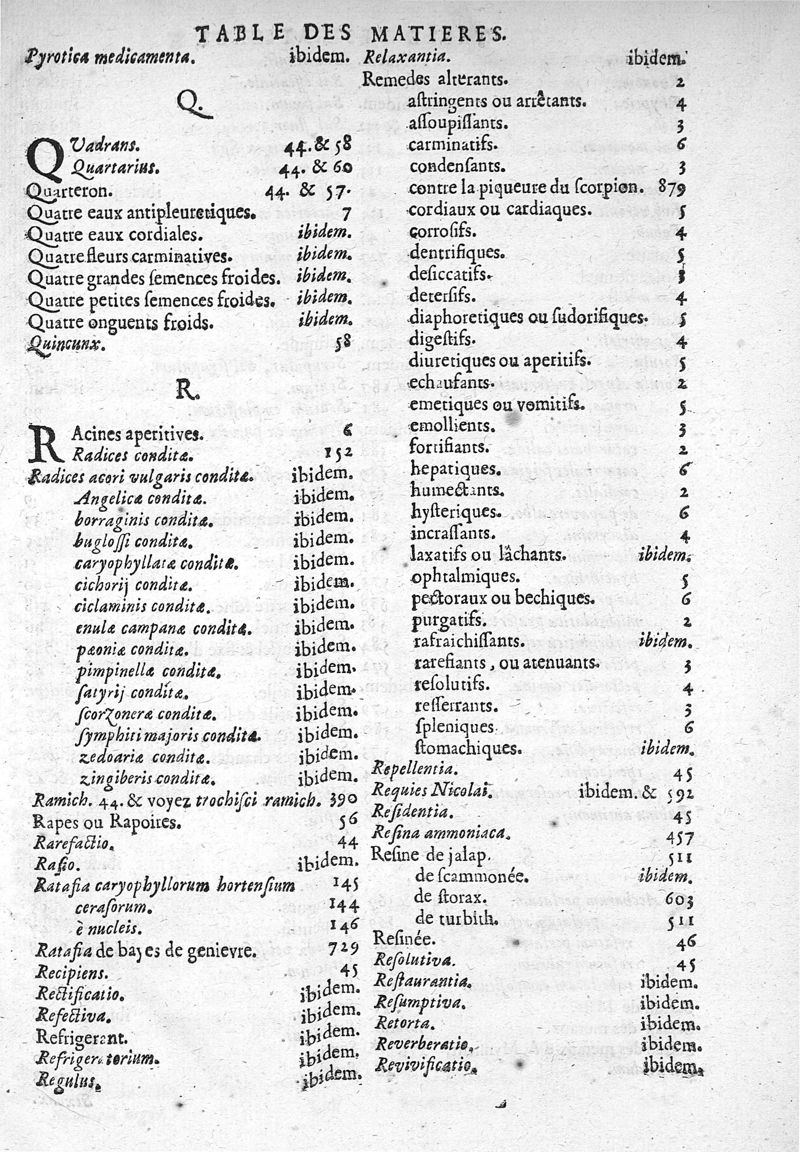 TABLE DES MATIERES.
Pyrotica medicamenta. ibidem.
Q.
QVadrans. 44. & 58
Quartarius. 44. & 60
Quarteron. 44. & 57.
Quatre eaux antipleuretiques. 7
Quatre eaux cordiales. ibidem.
Quatre fleurs carminatives. ibidem.
Quatre grandes semences froides. ibidem.
Quatre petites semences froides. ibidem.
Quatre onguents froids. ibidem.
Quincunx. 58
R.
RAcines aperitives. 6
Radices conditæ. 152
Radices acori vulgaris conditæ. ibidem.
Angelicæ conditæ. ibidem.
borraginis conditæ. ibidem.
buglossi conditæ. ibidem.
caryophyllatæ conditæ. ibidem.
cichorij conditæ. ibidem.
ciclaminis conditæ. ibidem.
enulæ campanæ conditæ. ibidem.
pæoniæ conditæ. ibidem.
pimpinellæ conditæ. ibidem.
satyrij conditæ. ibidem.
scorzoneræ conditæ. ibidem.
symphiti majoris conditæ. ibidem.
zedoariæ conditæ. ibidem.
zingiberis conditæ. ibidem.
Ramich. 44. & voyez trochisci ramich. 390
Rapes ou Rapoires. 56
Rarefactio. 44
Rasio. ibidem.
Ratafia caryophyllorum hortensium 145
cerasorum. 144
è nucleis. 146
Ratafia de bayes de genievre. 729
Recipiens. 45
Rectificatio. ibidem.
Refectiva. ibidem.
Refrigerant. ibidem.
Refrigeratorium. ibidem.
Regulus. ibidem.
Relaxantia. ibidem.
Remedes alterants. 2
astringents ou arrêtants. 4
assoupissants. 3
carminatifs. 6
condensants. 3
contre la piqueure du scorpion. 879
cordiaux ou cardiaques. 5
corrosifs. 4
dentrifiques. 5
desiccatifs.
detersifs. 4
diaphoretiques ou sudorifiques. 5
digestifs. 4
diuretiques ou aperitifs. 5
echaufants. 2
emetiques ou vomitifs. 5
emollients. 3
fortifiants. 2
hepatiques. 6
humectants. 2
hysteriques. 6
incrassants. 4
laxatifs ou lâchants. ibidem.
ophtalmiques. 5
pectoraux ou bechiques. 6
purgatifs. 2
rafraichissants. ibidem.
rarefiants, ou atenuants. 3
resolutifs. 4
resserrants. 3
spleniques 6
stomachiques. ibidem.
Repellentia. 45
Requies Nicolai. ibidem. & 592
Residentia. 45
Resina ammoniaca. 457
Resine de jalap. 511
de scammonée. ibidem.
de storax. 603
de turbith. 511
Resinée. 46
Resolutiva. 45
Restaurantia. ibidem.
Resumptiva. ibidem.
Retorta. ibidem.
Reverberatio. ibidem.
Revivificatio. ibidem.